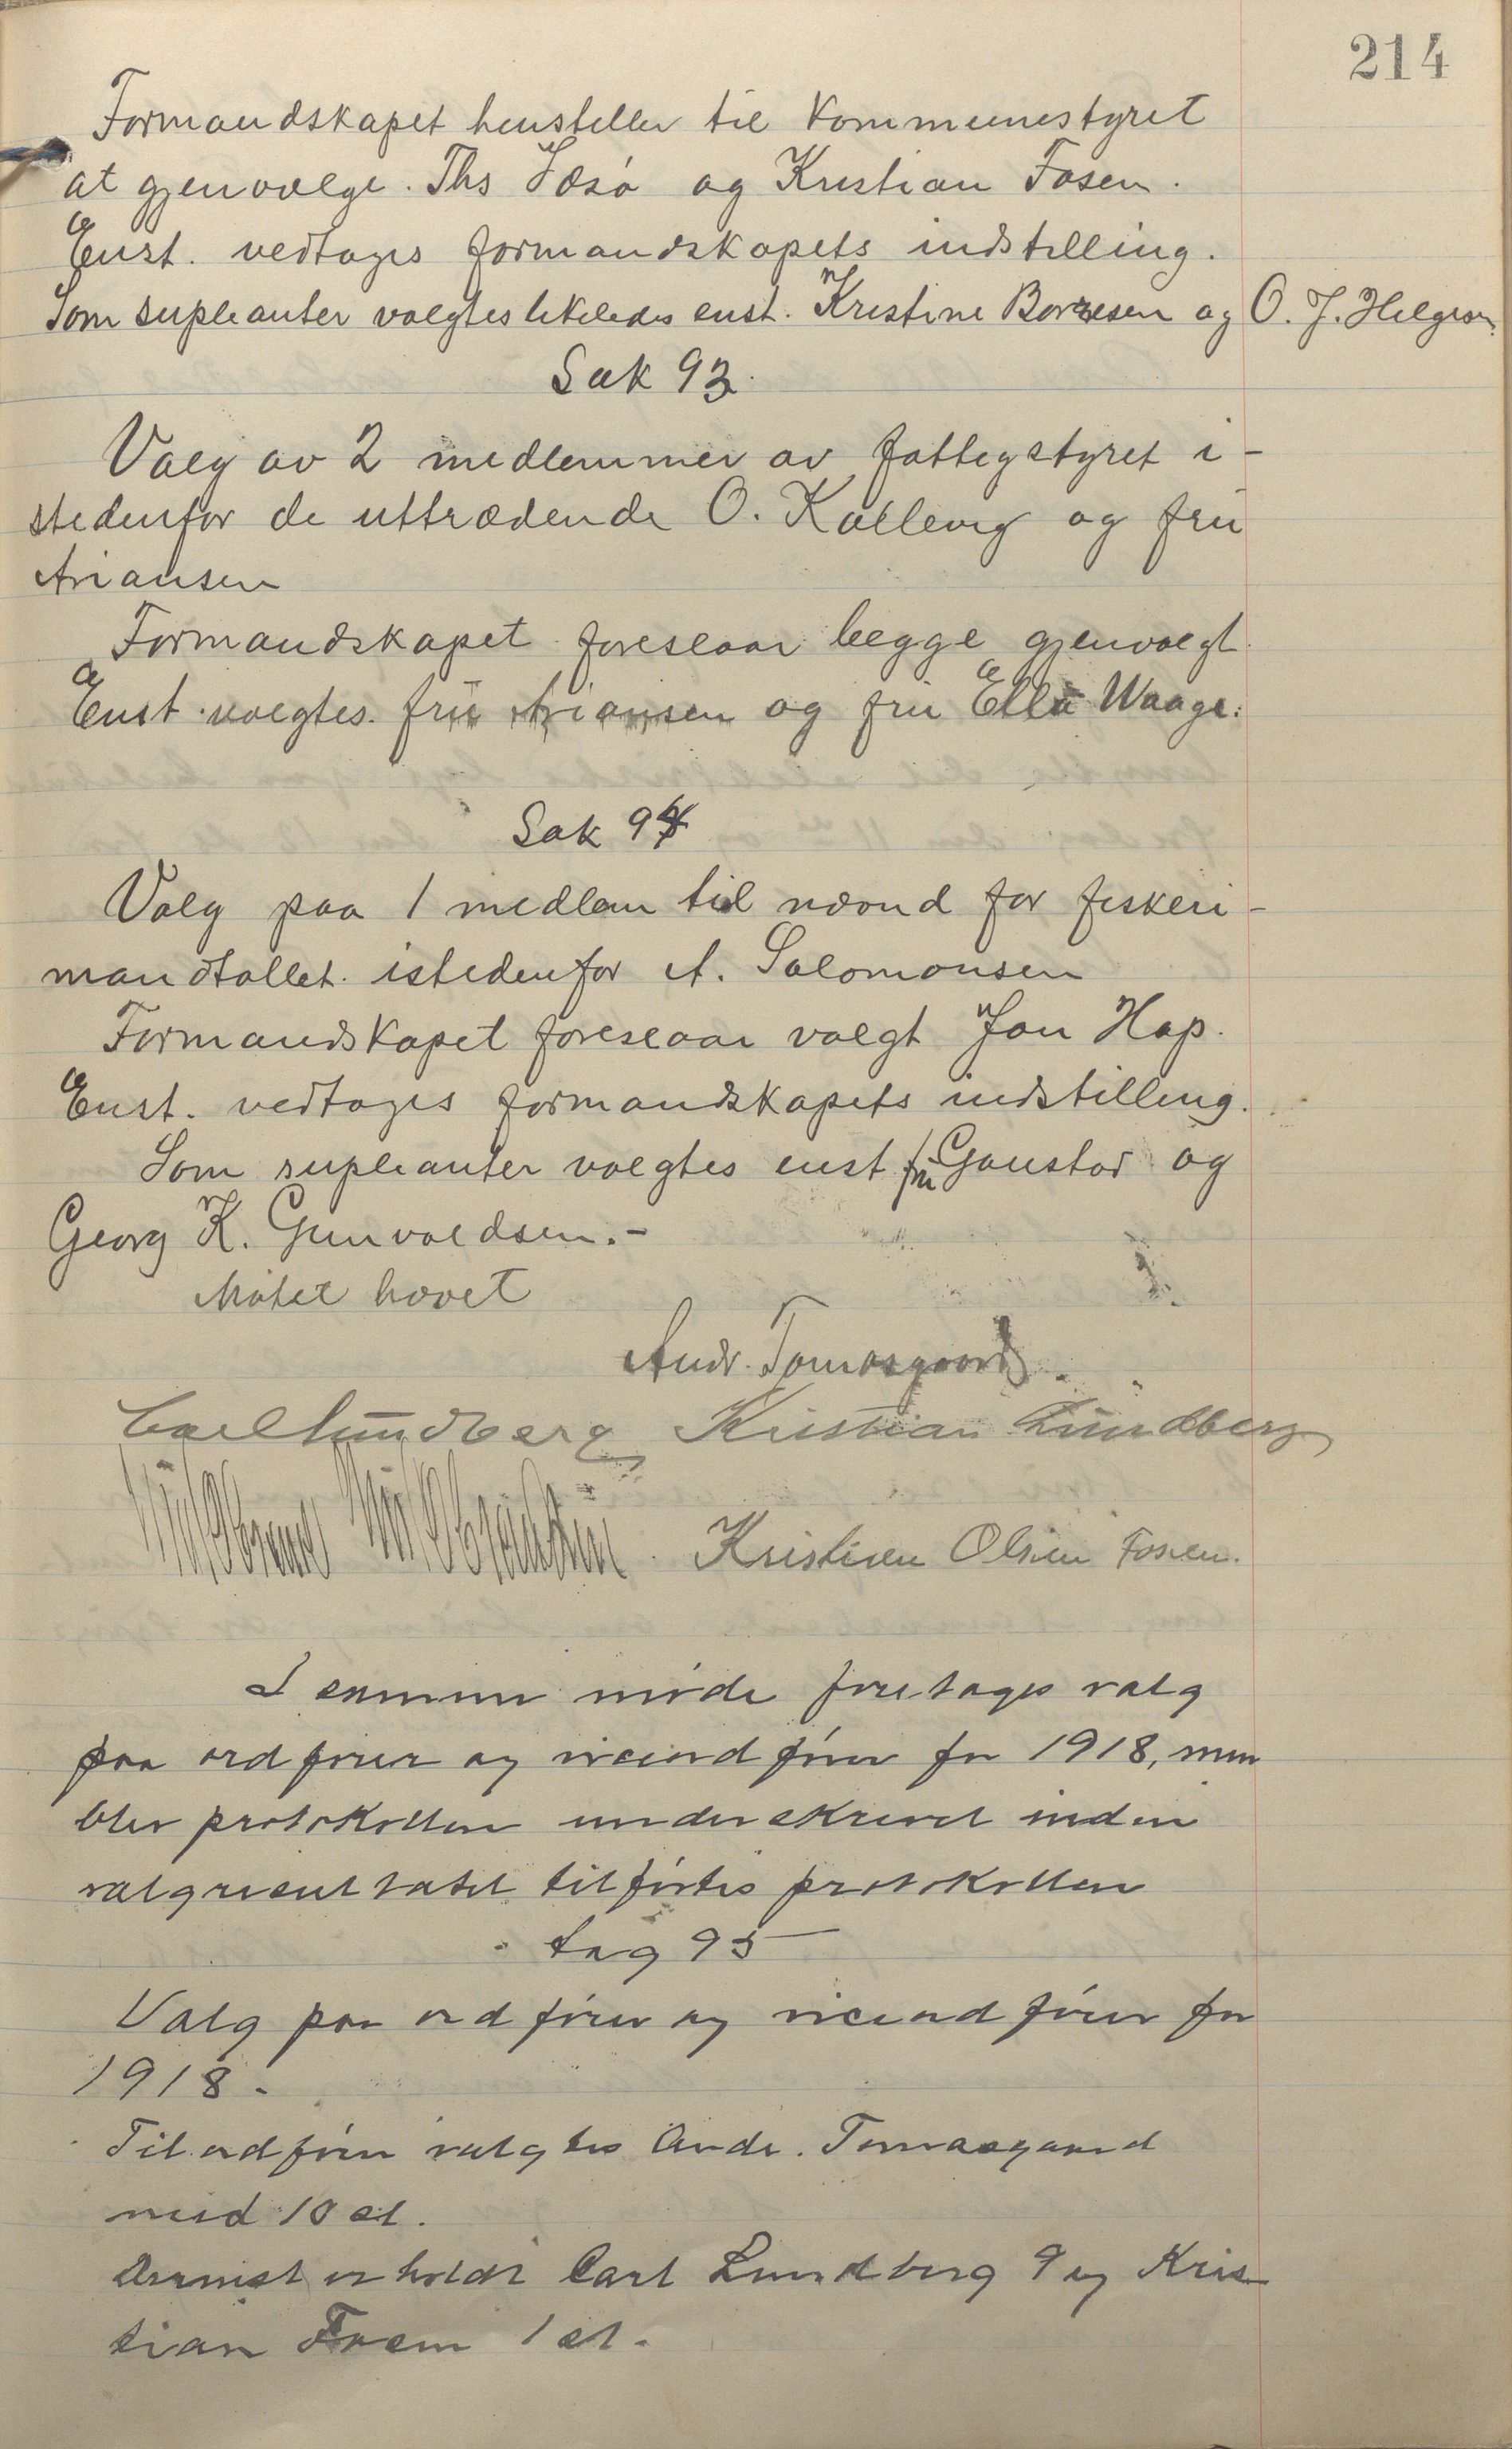 214
Formandskapet henstiller til Kommunestyret
at gjenvælge. Ths Væsø og Kristian Fosen.
Enst. vedtages formandskapets indstilling.
Som supleanter valgtes likeledes enst. Kristine Børresen og O. J. Helgesen.
Sak 93.
Valg av 2 medlemmer av fattigstyret i-
stedenfor de uttrædende O. Kallevig og fru
Ariansen
Formandskapet foreslaar begge gjenvalgt.
Enst. valgtes. fru Ariansen og fru Ella Waage.
Sak 94
Valg paa 1 medlem til nævnd for fiskeri-
mandtallet. istedenfor A. Salomonsen
Formandskapet foreslaar valgt Jon Hap.
Enst. vedtages formandskapets indstilling.
Som supleanter valgtes enst fru Gaustad og
Georg K. Gunvaldsen.-
Møtet hævet
Andr. Tomasgaard.
Carl Lundberg Kristian Lundberg
Kristian Olsen Fosen.
I samme møde foretages valg
paa ordfører og viceordfører for 1918, men
blev protokollen underskrevet inden
valgresultatet tilførtes protokollen
Sag 95
Valg paa ordfører og viceordfører for
1918.
Til ordfører valgtes Andr. Tomasgaard
med 10 st.
Dernæst erholdt Carl Lundberg 9 og Kris-
tian Fosen 1 st.